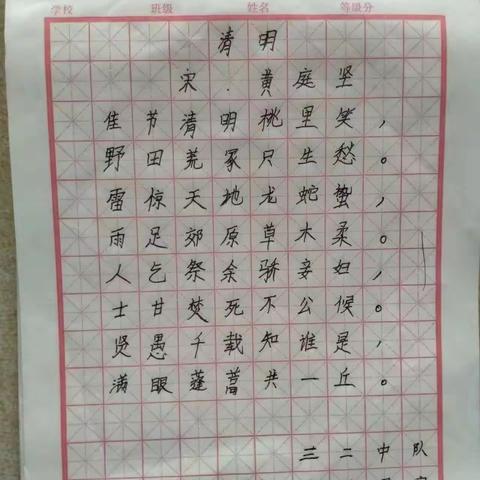 学校 班级 姓名 等级分
清明
宋.黄庭坚
佳节清明桃里笑，
野田荒冢只生愁。
雷惊天地龙蛇蛰，
雨足郊原草木柔。
人乞祭余骄妾妇，
士甘焚死不公候。
贤愚千载知谁是，
满眼蓬蒿共一丘。
三二中队